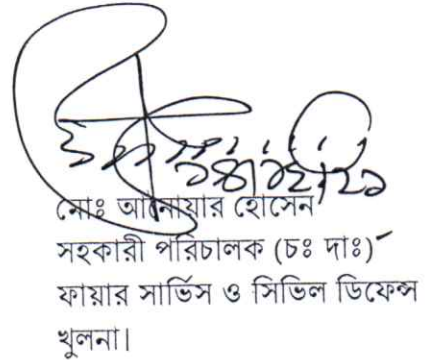 মোঃ আনোয়ার হোসেন
সহকারী পরিচালক (চঃ দাঃ)
ফায়ার সার্ভিস ও সিভিল ডিফেন্স
খুলনা।